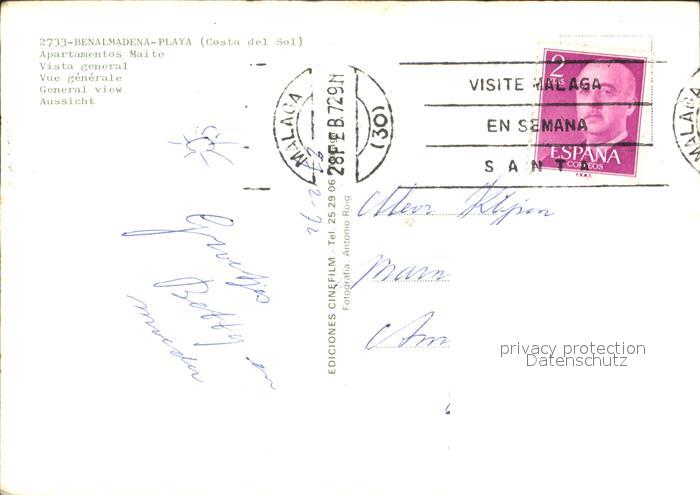 2733-BENALMADENA-PLAYA (Costa del Sol)
Apartamentos Maite
Vista general
Vue générale
General view
Aussicht
MALAGA
(30)
VISITE MALAGA
EN SEMANA
SANTA
2
PTS
ESPAÑA
CORREOS
F.N.M.T.
MALAGA
27-2-72
EDICIONES CINEFILM - Tel. 25 29 06
Fotografía: Antonio Roig
Groetjes
Betty en
moeder
privacy protection
Datenschutz